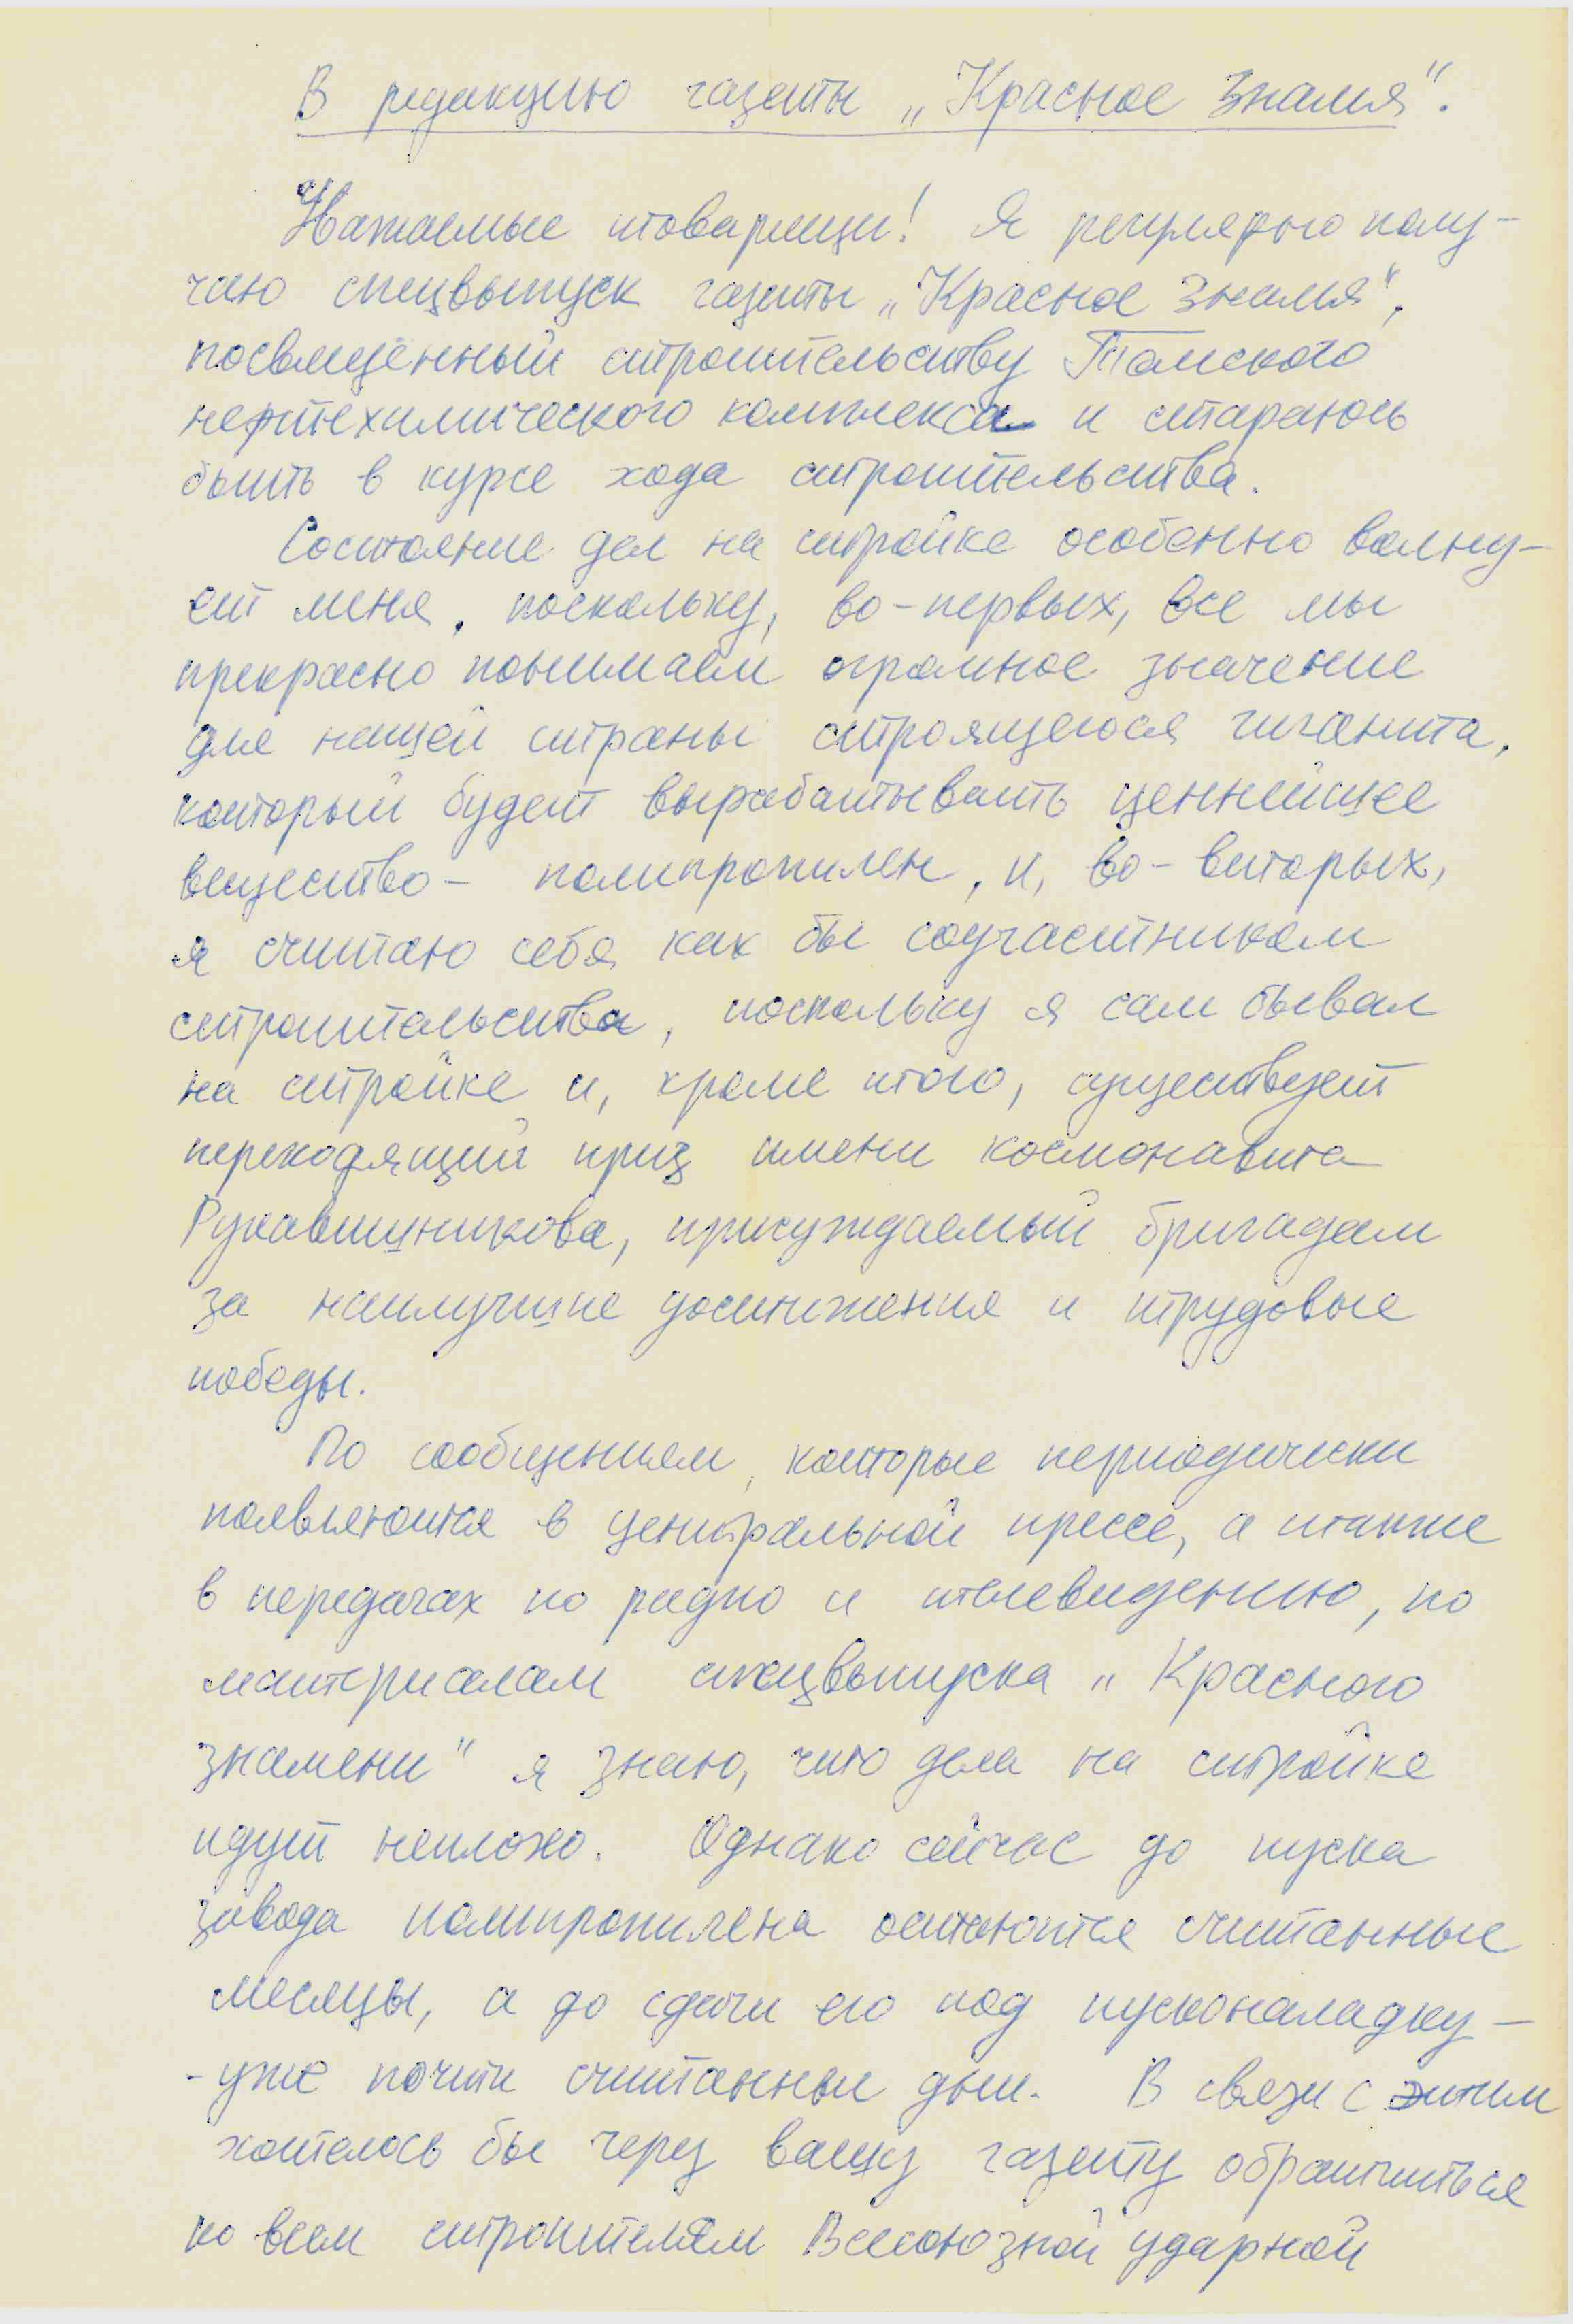 В редакцию газеты „Красное Знамя".
Уважаемые товарищи! Я регулярно полу-
чаю спецвыпуск газеты „Красное Знамя",
посвященный строительству Томского
нефтехимического комплекса и стараюсь
быть в курсе хода строительства.
Состояние дел на стройке особенно волну-
ет меня, поскольку, во-первых, все мы
прекрасно понимаем огромное значение
для нашей страны строящегося гиганта,
который будет вырабатывать ценнейшее
вещество - полипропилен, и, во-вторых,
я считаю себя как бы соучастником
строительства, поскольку я сам бывал
на стройке и, кроме того, существует
переходящий приз имени космонавта
Рукавишникова, присуждаемый бригадам
за наилучшие достижения и трудовые
победы.
По сообщениям, которые периодически
появляются в центральной прессе, а также
в передачах по радио и телевидению, по
материалам спецвыпуска „Красного
знамени" я знаю, что дела на стройке
идут неплохо. Однако сейчас до пуска
завода полипропилена остаются считанные
месяцы, а до сдачи его под пусконаладку -
- уже почти считанные дни. В связи с этим
хотелось бы через вашу газету обратиться
ко всем строителям Всесоюзной ударной